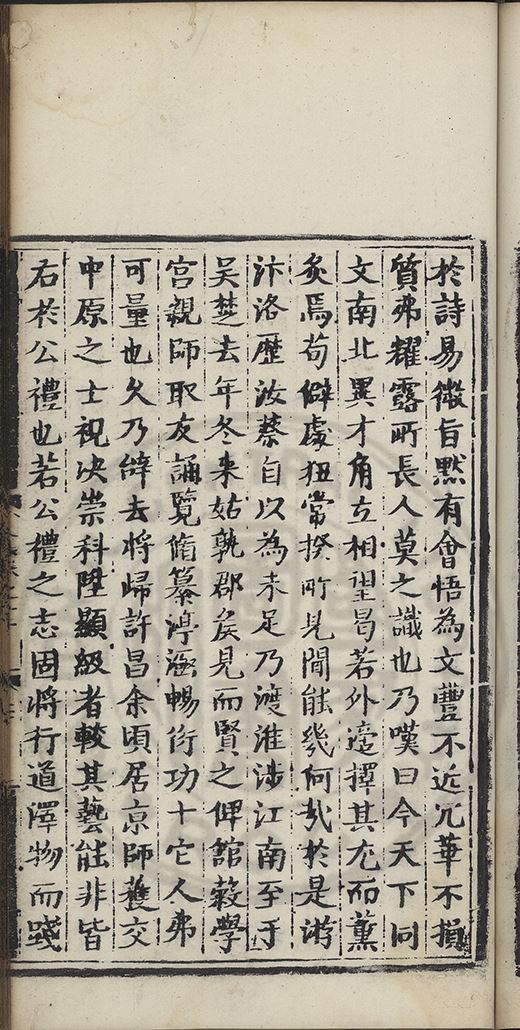 於詩易微旨黙有會悟為文豐不近冗華不損
質弗耀露所長人莫之識也乃嘆曰今天下同
文南北異才角立相望曷若外遊擇其尤而薰
炙焉苟僻處狃常揆所見聞能幾何哉於是游
汴洛歷汝蔡自以為未足乃渡淮涉江南至于
吳楚去年冬来姑孰郡矦見而賢之俾舘榖學
宫親師取友誦覽脩纂渟涵暢衍功十它人弗
可量也久乃辤去將歸許昌余頃居京師獲交
中原之士視决崇科陞顯級者較其藝能非皆
右於公禮也若公禮之志固將行道澤物而踐